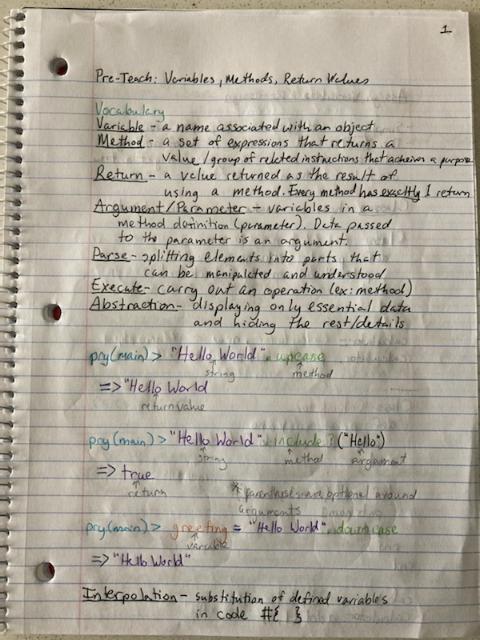 1
Pre-Teach: Variables, Methods, Return Values
Vocabulary
Variable - a name associated with an object
Method - a set of expressions that returns a
value/group of related instructions that achieves a purpose
Return - a value returned as the result of
using a method. Every method has exactly 1 return
Argument/Parameter - variables in a
method definition (parameter). Data passed
to the parameter is an argument.
Parse - splitting elements into parts that
can be manipulated and understood
Execute - carry out an operation (ex: method)
Abstraction - displaying only essential data
and hiding the rest/details
pry(main)> "Hello World".upcase
string method
=> "Hello World
return value
pry(main)> "Hello World".include?("Hello")
string method argument
=> true
return * parenthesis are optional around
arguments
pry(main)> greeting = "Hello World".downcase
variable
=> "Hello World"
Interpolation - substitution of defined variables
in code #{ }